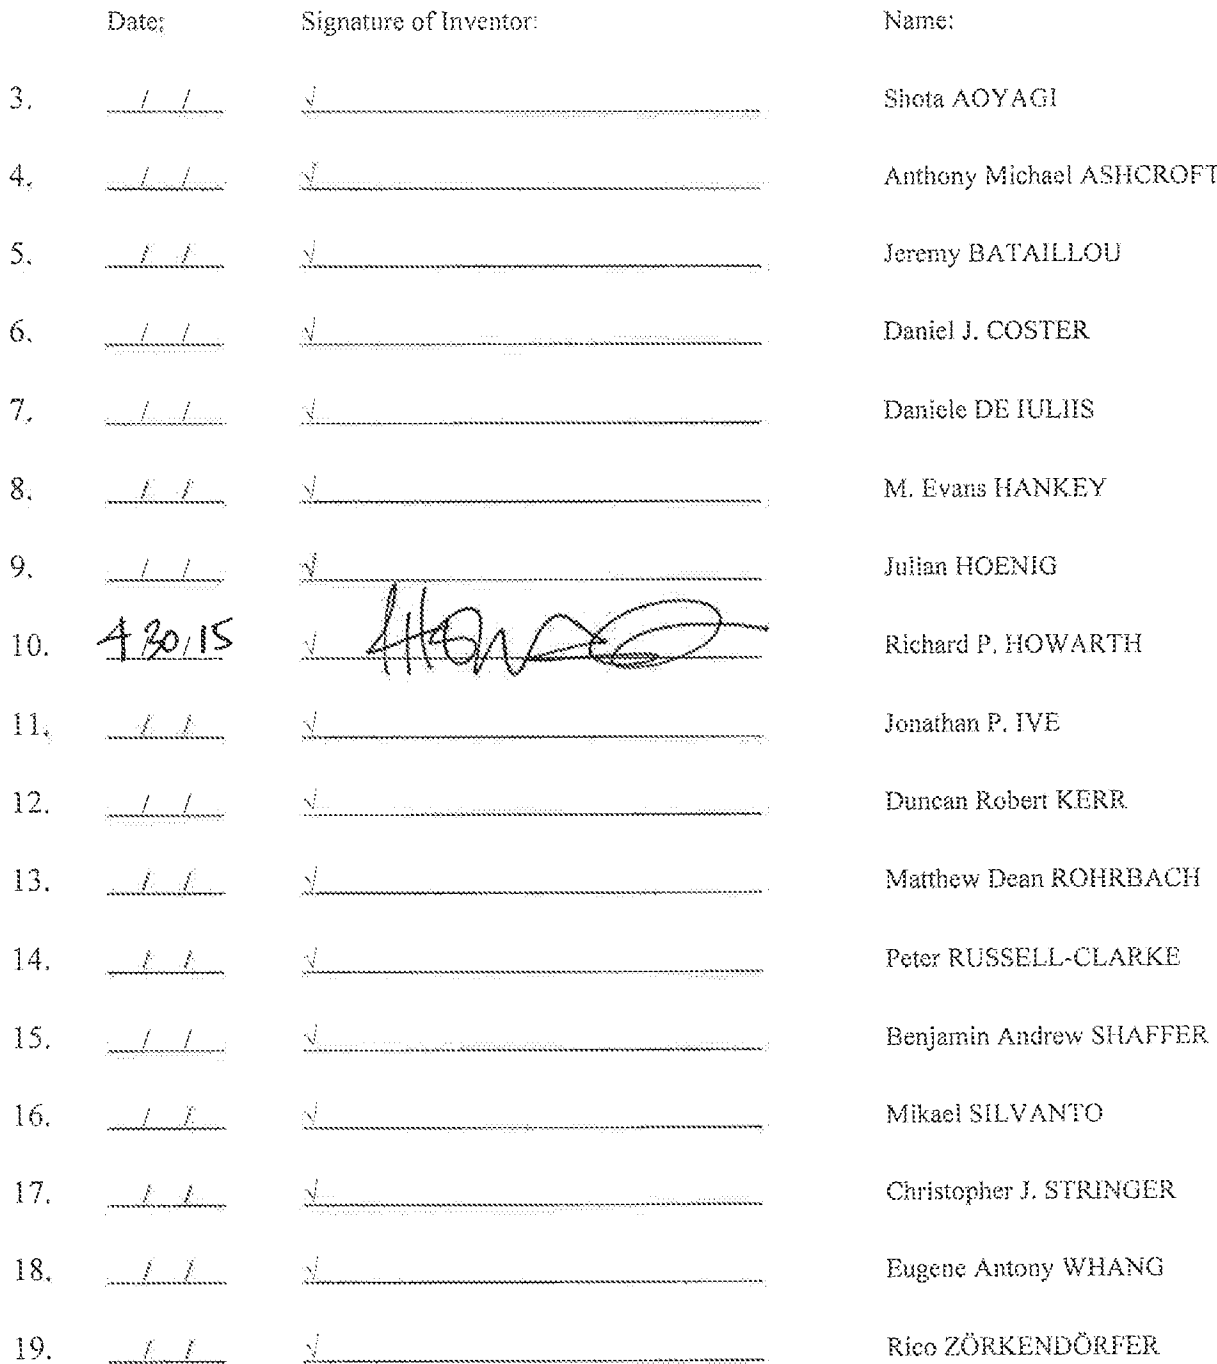 Date: Signature of Inventor: Name:
3. / / √ Shota AOYAGI
4. / / √ Anthony Michael ASHCROFT
5. / / √ Jeremy BATAILLOU
6. / / √ Daniel J. COSTER
7. / / √ Daniele DE IULIIS
8. / / √ M. Evans HANKEY
9. / / √ Julian HOENIG
10. 4/30/15 √ Richard P. HOWARTH
11. / / √ Jonathan P. IVE
12. / / √ Duncan Robert KERR
13. / / √ Matthew Dean ROHRBACH
14. / / √ Peter RUSSELL-CLARKE
15. / / √ Benjamin Andrew SHAFFER
16. / / √ Mikael SILVANTO
17. / / √ Christopher J. STRINGER
18. / / √ Eugene Antony WHANG
19. / / √ Rico ZÖRKENDÖRFER